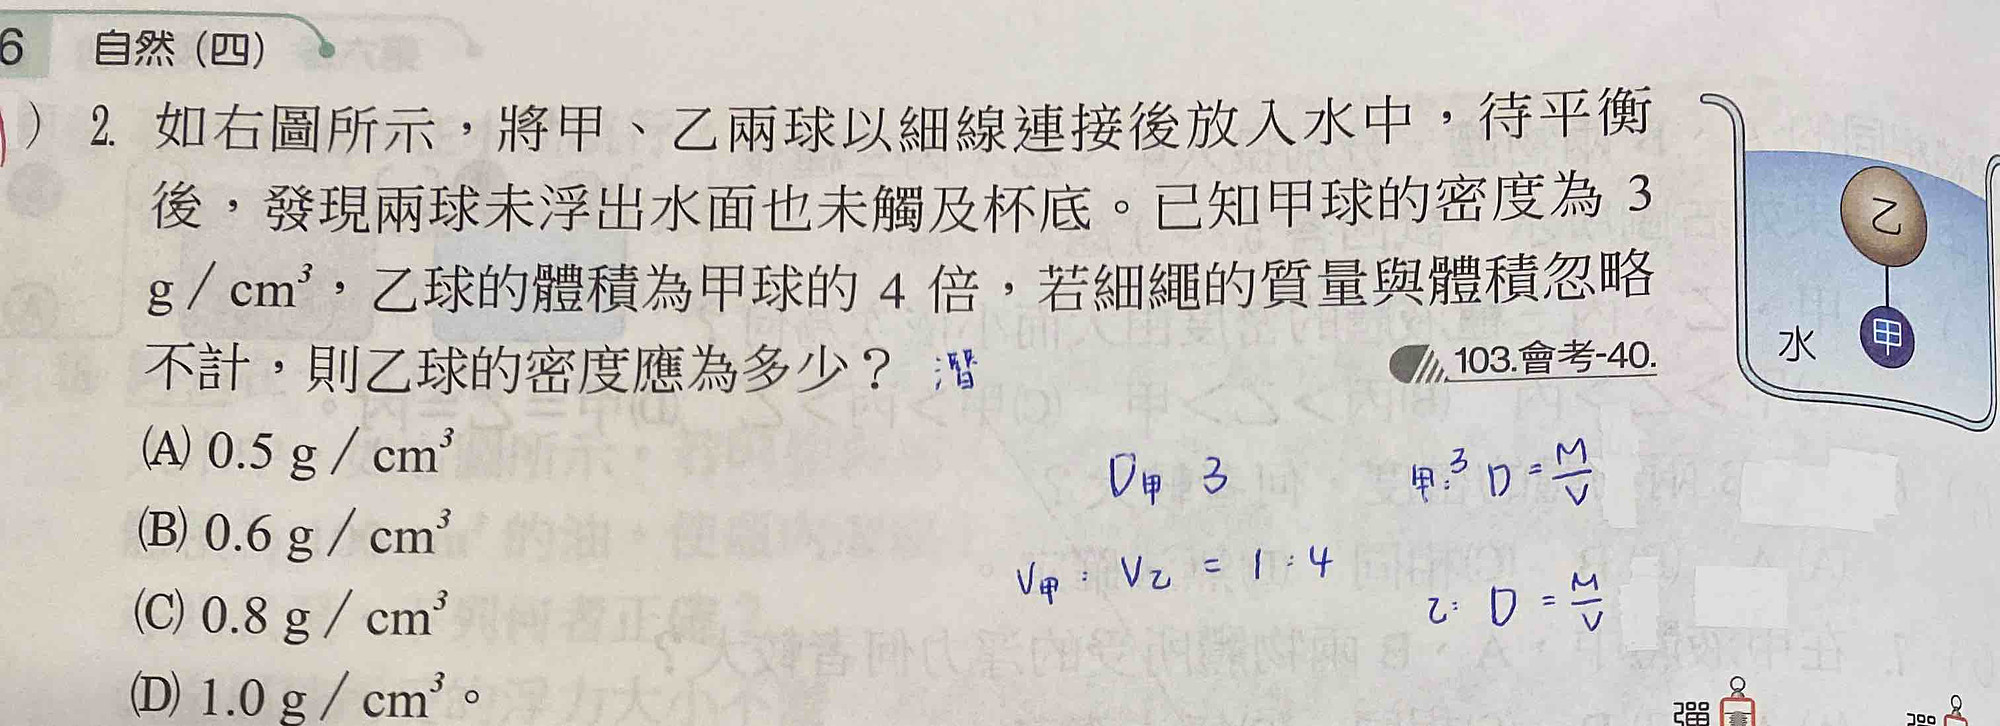 6 自然(四)
) 2. 如右圖所示，將甲、乙兩球以細線連接後放入水中，待平衡
後，發現兩球未浮出水面也未觸及杯底。已知甲球的密度為 3
g / cm³，乙球的體積為甲球的 4 倍，若細繩的質量與體積忽略
不計，則乙球的密度應為多少？
103.會考-40.
乙
甲
水
(A) 0.5 g / cm³
(B) 0.6 g / cm³
(C) 0.8 g / cm³
(D) 1.0 g / cm³。
D甲 3
V甲 : V乙 = 1 : 4
甲: 3 D = M/V
乙: D = M/V
彈